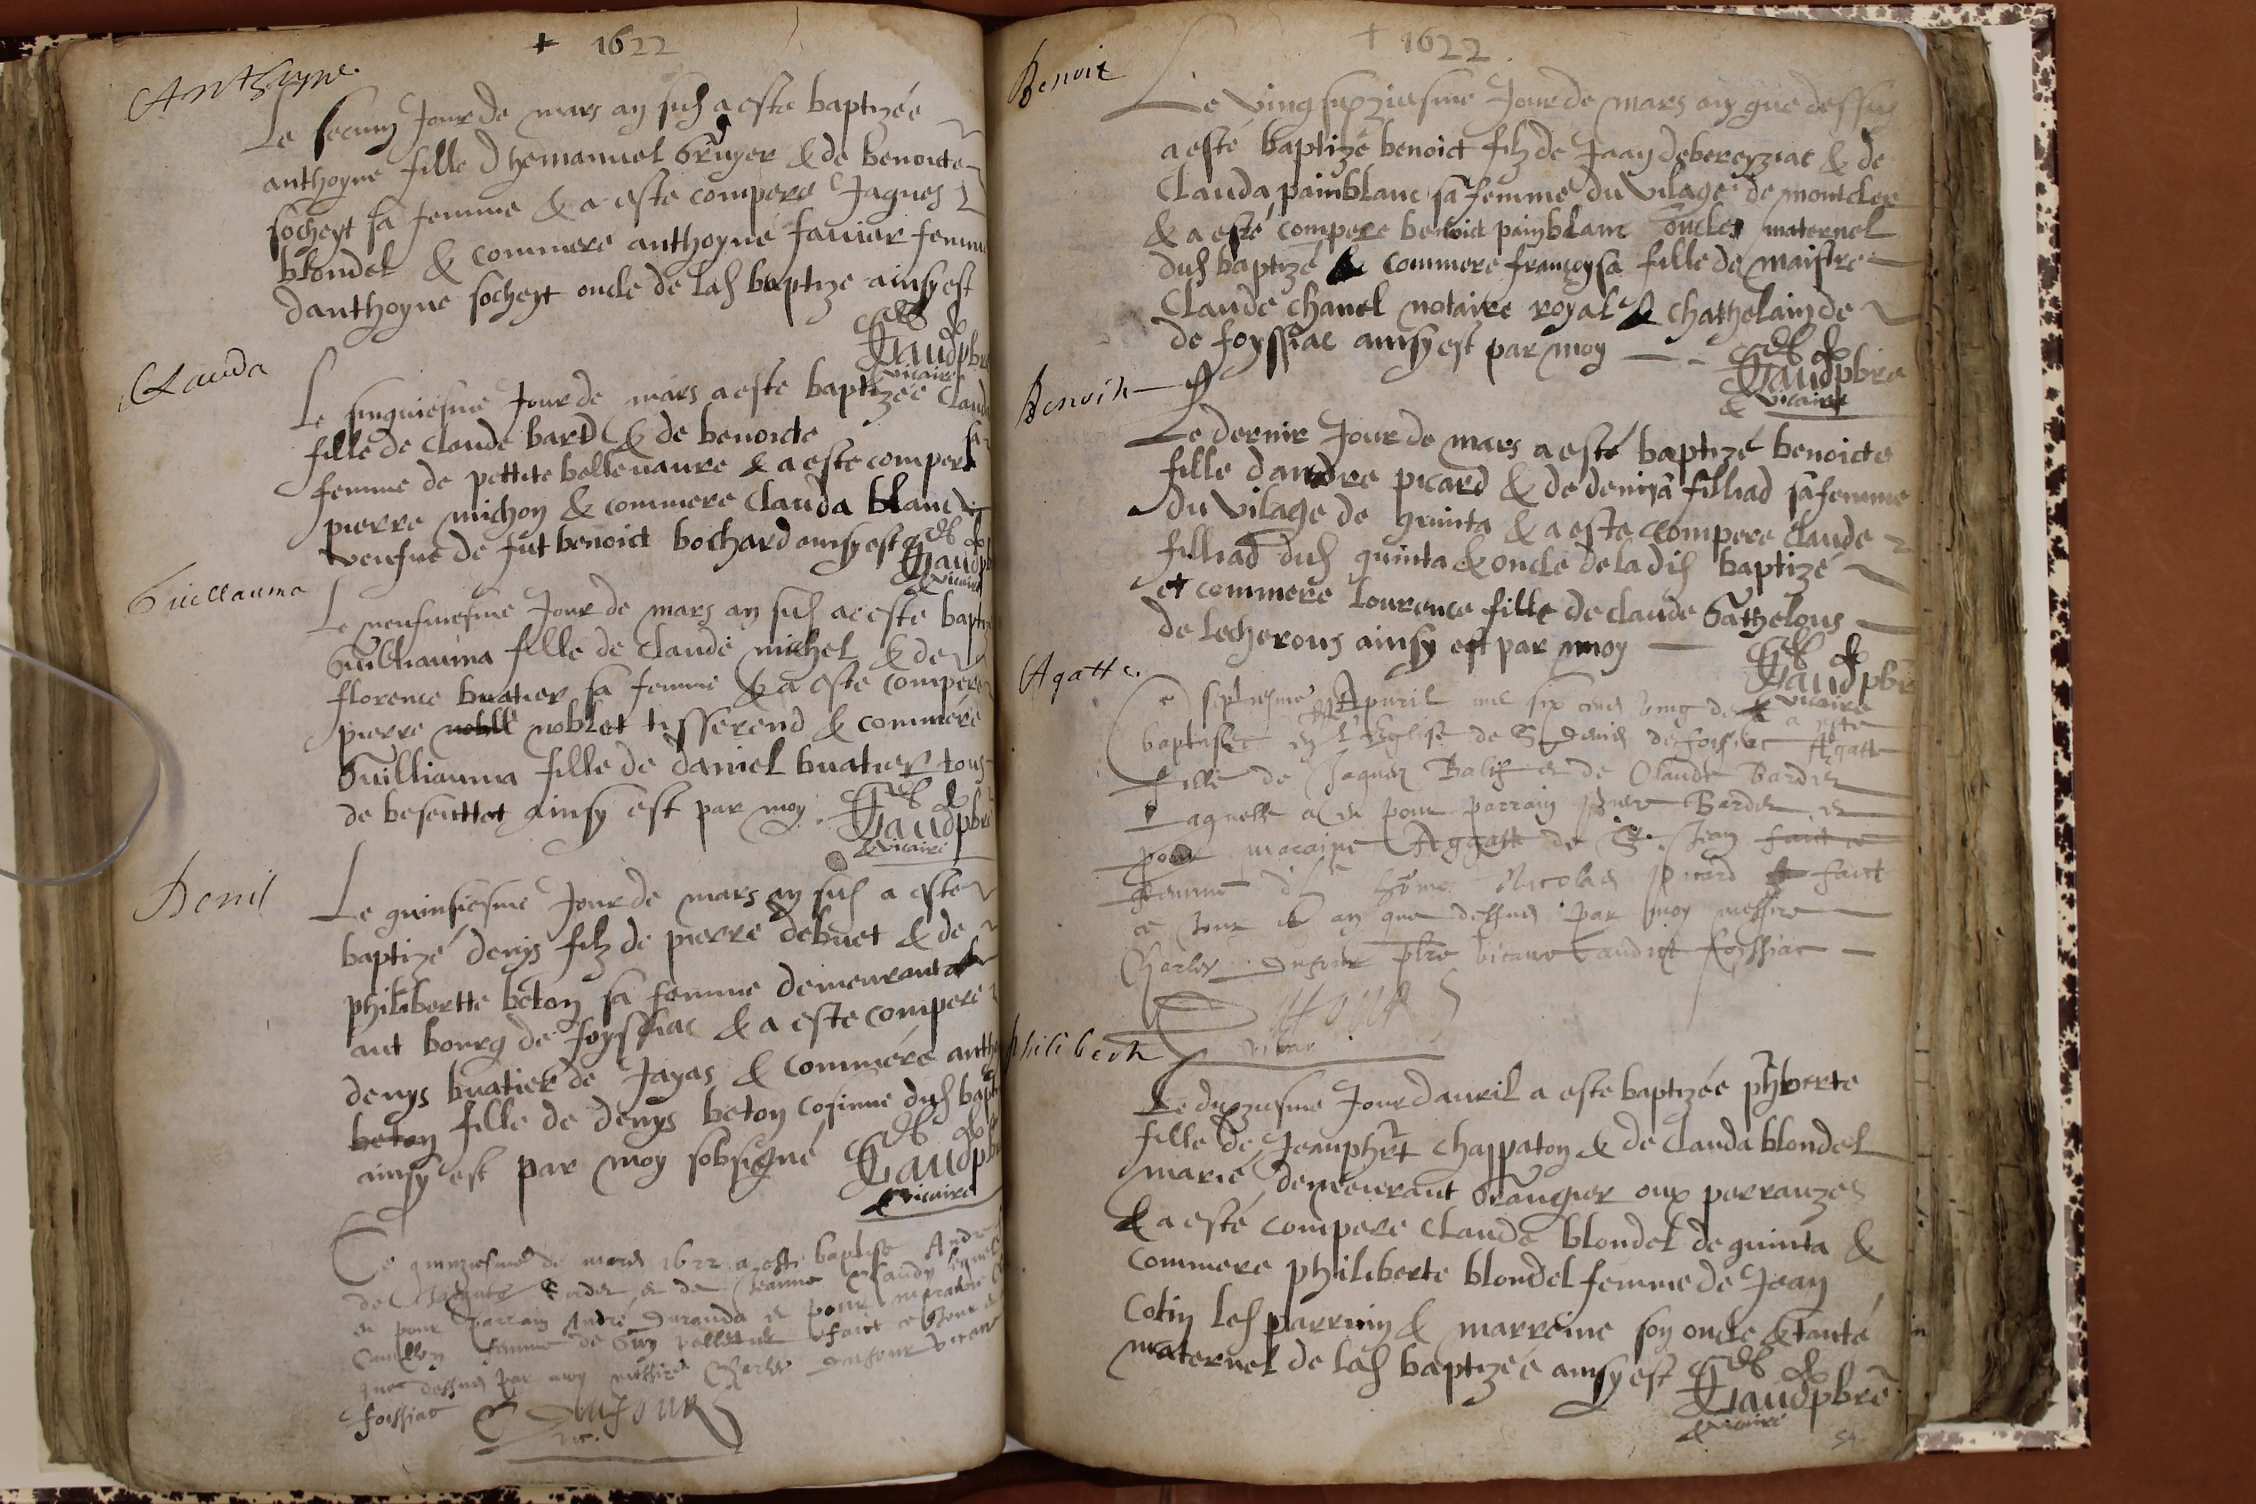 + 1622
Anthoyne
Le second Jour de mars an sus a este baptizée
anthoyne fille dhemanuel Gruyer & de benoicte
socheyt sa femme & a este compere Jaques
blondel & commere anthoyne favier femme
danthoyne socheyt oncle de lad baptize ainsy est
Gaud pbre
vicaire
Clauda
Le sinquiesme Jour de mars a este baptizée Clauda
fille de Claude bard & de benoicte sa
femme de pettite bellevavre & a este compere
pierre michon & commere Clauda blanc
veufve de fut benoict bochard ainsy est
Gaud pbre
vicaire
Guillauma
Le neufviesme Jour de mars an sus a este baptizé
Guilliauma fille de Claude michel & de
florence buatier sa femme & a este compere
pierre noblet tisserend & commere
Guilliauma fille de daniel buatier tous
de besenttet ainsy est par moy
Gaud pbre
vicaire
Denis
Le quinsiesme Jour de mars an sus a este
baptizé denys filz de pierre debuet & de
philibertte beton sa femme demeurant
aut bourg de foyssiac & a este compere
denys buatier de Jayas & commere anth
beton fille de denys beton cosinne dud bapt
ainsy est par moy sobsigné
Gaud pbre
vicaire
Ce quinziesme de mars 1622 a este baptise André
de et de Jeanne
et pour parrain André Duranda et pour maraine
femme de Guy faict ce Jour et
que dessus par moy messire Charles Dufour vicaire
foissiac Dufour
vic.
+ 1622
Benoit
Le vingsixziesme Jour de mars an que dessus
a esté baptizé benoict filz de Jean debereyziat & de
Clauda painblanc sa femme du vilage de montcler
& a esté compere benoict painblanc oncle maternel
dud baptizé & commere françoysa fille de maistre
Claude chanel notaire royal & chathelain de
de foyssiac ainsy est par moy
Gaud pbre
& vicaire
Benoite
Le dernir Jour de mars a esté baptizé benoicte
fille dandre picard & de denisa filliad sa femme
du vilage de quinta & a este compere Claude
filliad dud quinta & oncle de ladis baptizé
et commere lourence fille de claude Gathelous
de lecherous ainsy est par moy
Gaud pbre
vicaire
Agatte
Ce septiesme Apuril mil six cens ving deux a este
baptisée en l'Eglise de S Denis de foissiac Agatte
fille de Jaques Balif et de Claude Bardet
Laquelle a eu pour parrain piere Bardet et
pour maraine Aggatte de St Jean faict ce
femme d'h home Nicolas picard faict
ce jour et an que dessus par moy messire
Charles Dufour pbre vicaire audict Foissiac
Dufour
vicar
Philiberte
Le dixziesme Jour d'auril a este baptizée phberte
fille de Jeanphrt chappaton & de Clauda blondel
marié demeurant Grangier oux perrauzes
& a esté compere Claude blondel de quinta &
commere philiberte blondel femme de Jean
Cotin les parrin & marreine son oncle & tante
maternel de lad baptizée ainsy est
Gaud pbre
vicaire
54